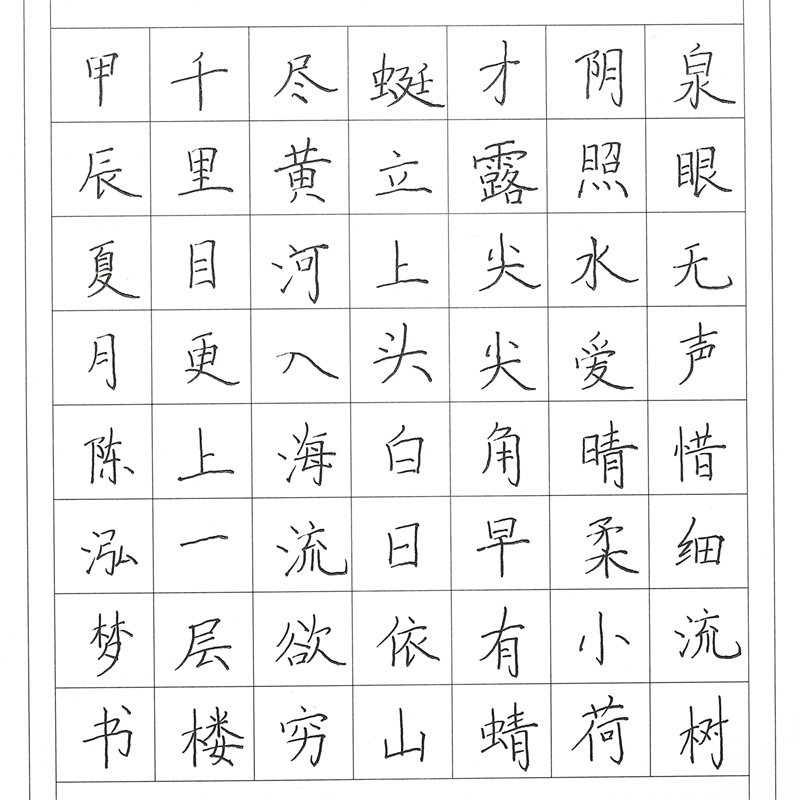 泉眼无声惜细流树
阴照水爱晴柔小荷
才露尖尖角早有蜻
蜓立上头白日依山
尽黄河入海流欲穷
千里目更上一层楼
甲辰夏月陈泓梦书